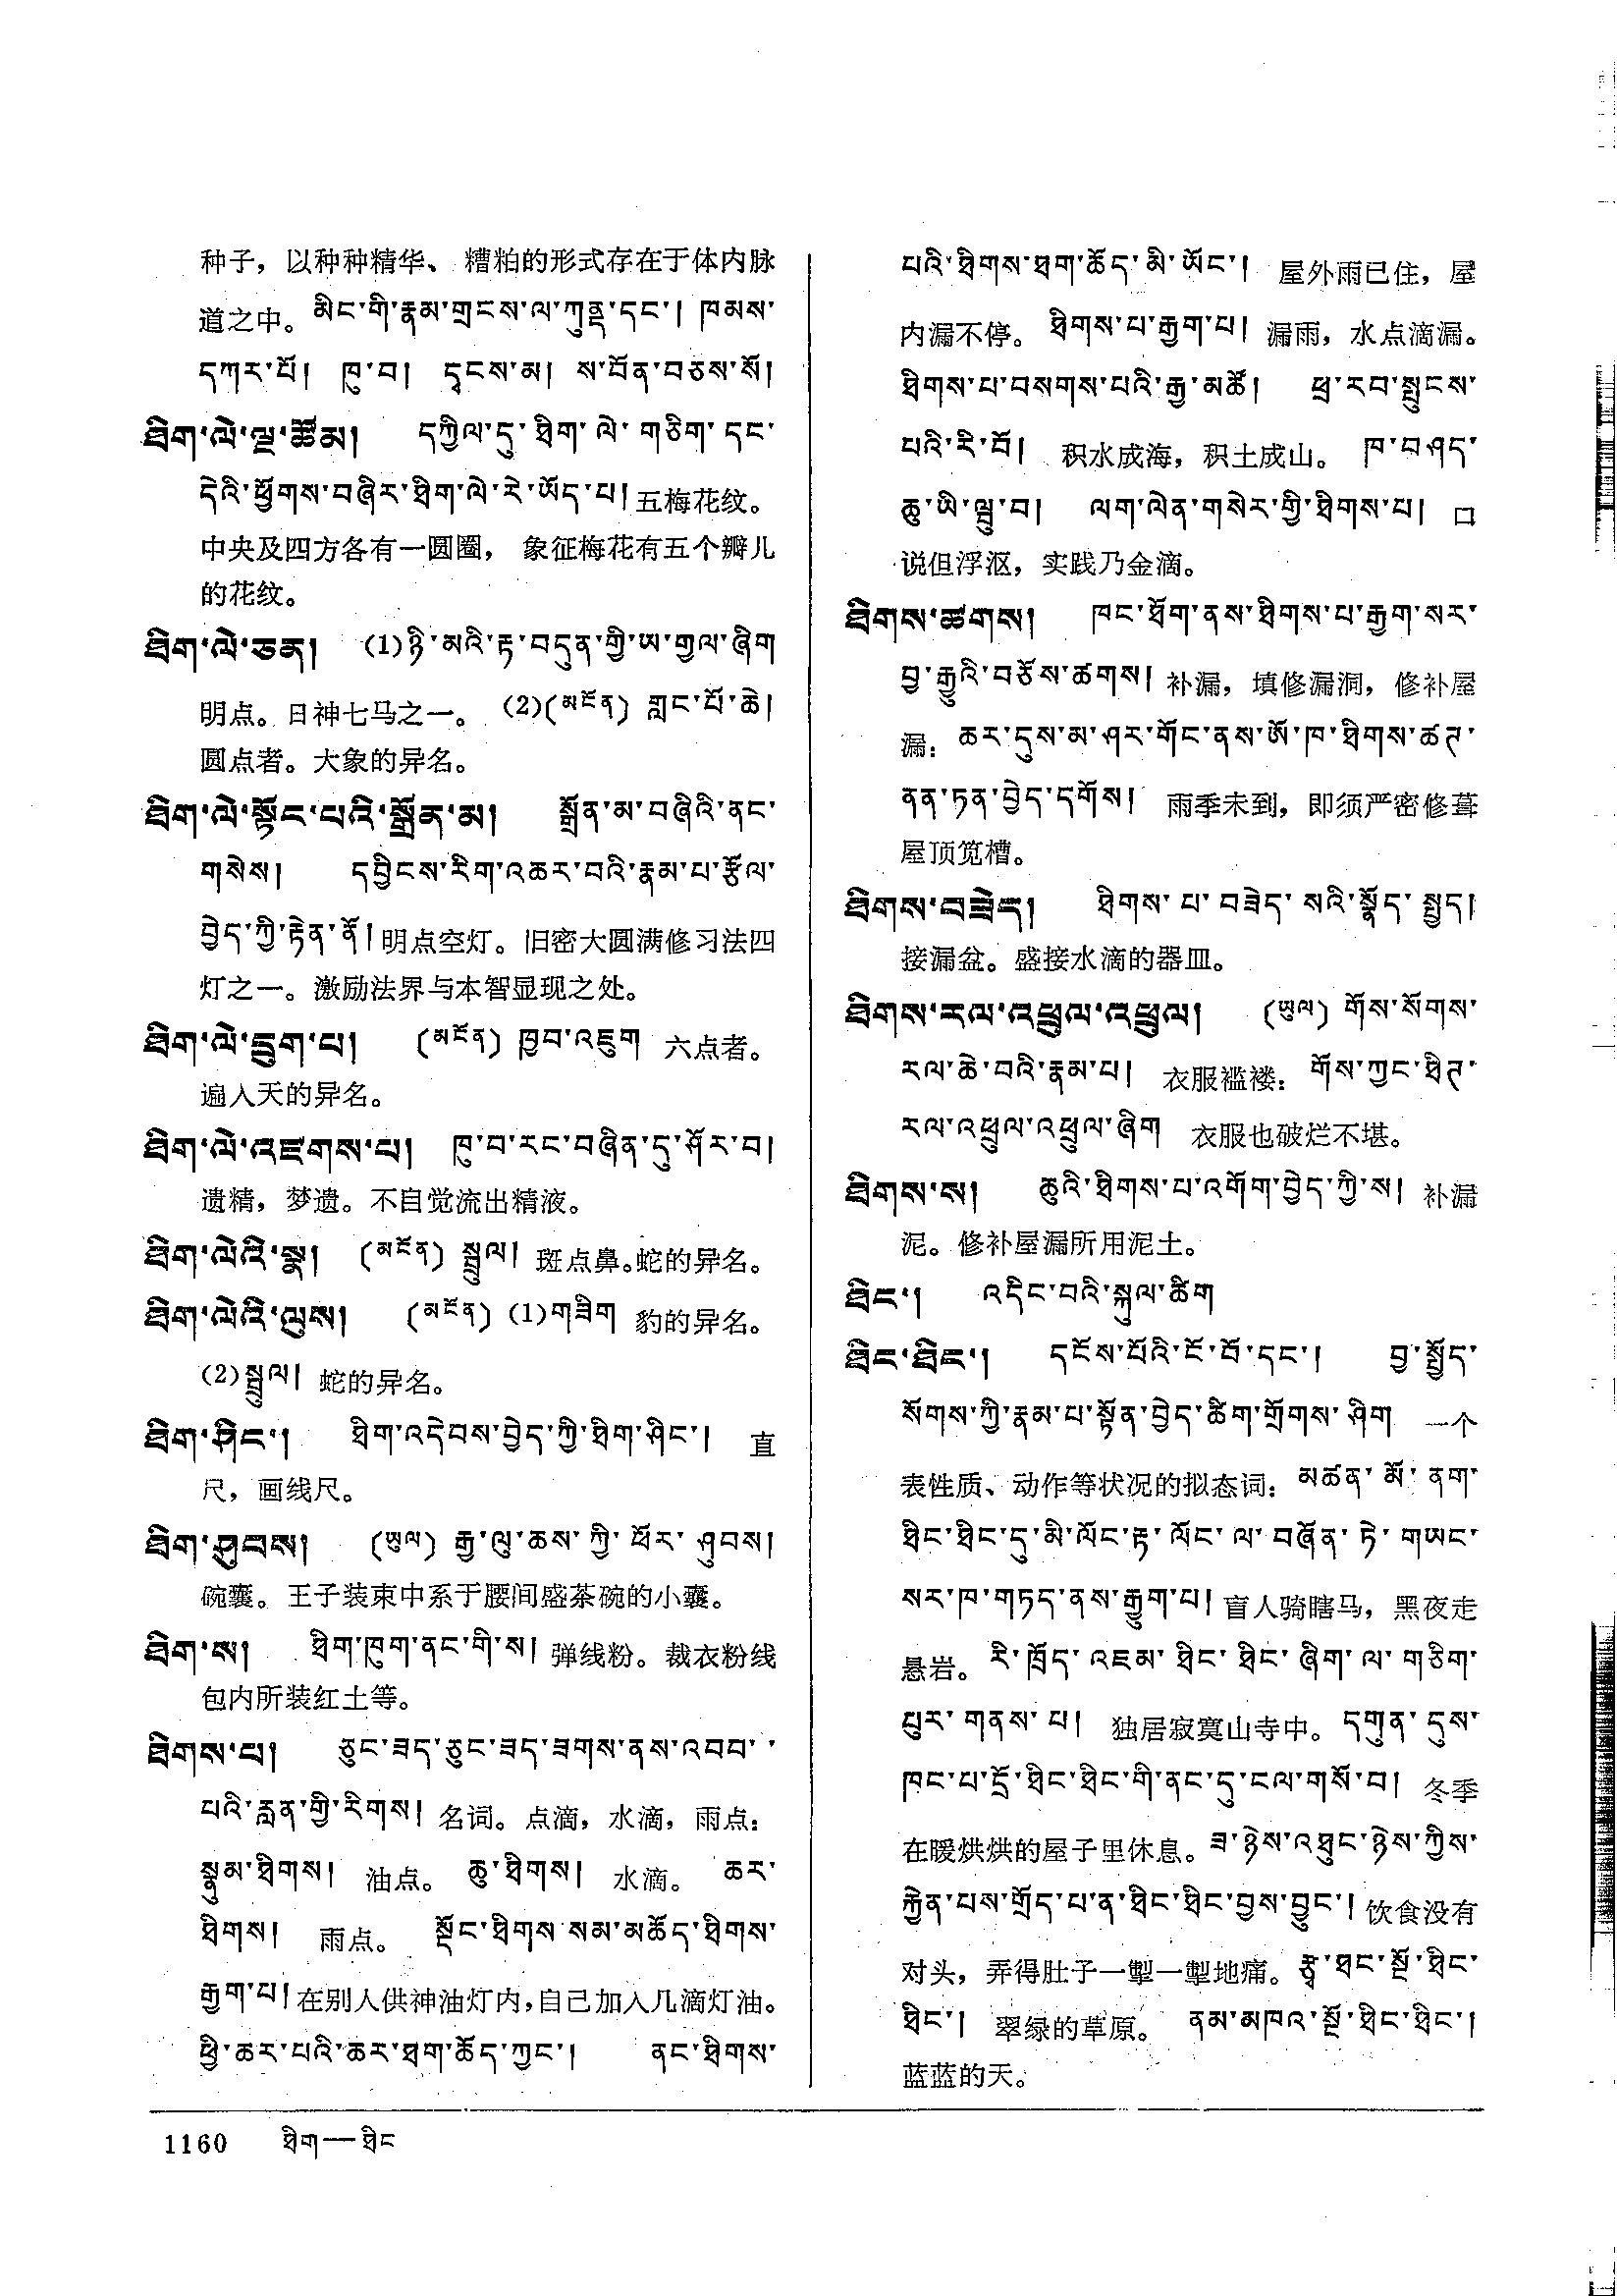 种子，以种种精华、糟粕的形式存在于体内脉
道之中。 མིང་གི་རྣམ་གྲངས་ལ་ཀུནྡ་དང་། ཁམས་
དཀར་པོ། ཁུ་བ། དྭངས་མ། ས་བོན་བཅས་སོ།
ཐིག་ལེ་ལྔ་ཚོམ། དཀྱིལ་དུ་ཐིག་ལེ་གཅིག་དང་
དེའི་ཕྱོགས་བཞིར་ཐིག་ལེ་རེ་ཡོད་པ། 五梅花纹。
中央及四方各有一圆圈， 象征梅花有五个瓣儿
的花纹。
ཐིག་ལེ་ཅན། (1)ཉི་མའི་རྟ་བདུན་གྱི་ཡ་གྱལ་ཞིག
明点。日神七马之一。 (2)(མངོན) གླང་པོ་ཆེ།
圆点者。大象的异名。
ཐིག་ལེ་སྟོང་པའི་སྒྲོན་མ། སྒྲོན་མ་བཞིའི་ནང་
གསེས། དབྱིངས་རིག་འཆར་བའི་རྣམ་པ་རྩོལ་
བྱེད་ཀྱི་རྟེན་ནོ། 明点空灯。旧密大圆满修习法四
灯之一。激励法界与本智显现之处。
ཐིག་ལེ་དྲུག་པ། (མངོན) ཁྱབ་འཇུག 六点者。
遍入天的异名。
ཐིག་ལེ་འཛགས་པ། ཁུ་བ་རང་བཞིན་དུ་ཤོར་བ།
遗精，梦遗。不自觉流出精液。
ཐིག་ལེའི་སྣ། (མངོན) སྦྲུལ། 斑点鼻。蛇的异名。
ཐིག་ལེའི་ལུས། (མངོན) (1)གཟིག 豹的异名。
(2)སྦྲུལ། 蛇的异名。
ཐིག་ཤིང་། ཐིག་འདེབས་བྱེད་ཀྱི་ཐིག་ཤིང་། 直
尺，画线尺。
ཐིག་ཤུབས། (ཡུལ) རྒྱ་ལུ་ཆས་ཀྱི་ཕོར་ཤུབས།
碗囊。王子装束中系于腰间盛茶碗的小囊。
ཐིག་ས། ཐིག་ཁུག་ནང་གི་ས། 弹线粉。裁衣粉线
包内所装红土等。
ཐིགས་པ། ཅུང་ཟད་ཅུང་ཟད་ཟགས་ནས་འབབ་
པའི་རླན་གྱི་རིགས། 名词。点滴，水滴，雨点：
སྣུམ་ཐིགས། 油点。 ཆུ་ཐིགས། 水滴。 ཆར་
ཐིགས། 雨点。 སྡོང་ཐིགས་སམ་མཆོད་ཐིགས་
རྒྱག་པ། 在别人供神油灯内，自己加入几滴灯油。
ཕྱི་ཆར་པའི་ཆར་ཐག་ཆོད་ཀྱང་། ནང་ཐིགས་
པའི་ཐིགས་ཐག་ཆོད་མི་ཡོང་། 屋外雨已住，屋
内漏不停。 ཐིགས་པ་རྒྱག་པ། 漏雨，水点滴漏。
ཐིགས་པ་བསགས་པའི་རྒྱ་མཚོ། ཕྲ་རབ་སྤུངས་
པའི་རི་བོ། 积水成海，积土成山。 ཁ་བཤད་
ཆུ་ཡི་ལྦུ་བ། ལག་ལེན་གསེར་གྱི་ཐིགས་པ། 口
说但浮沤，实践乃金滴。
ཐིགས་ཚགས། ཁང་ཐོག་ནས་ཐིགས་པ་རྒྱག་སར་
བྱ་རྒྱུའི་བཅོས་ཚགས། 补漏，填修漏洞，修补屋
漏： ཆར་དུས་མ་ཤར་གོང་ནས་ཨོ་ཁ་ཐིགས་ཚཊ་
ནན་ཏན་བྱེད་དགོས། 雨季未到，即须严密修葺
屋顶笕槽。
ཐིགས་བཟེད། ཐིགས་པ་བཟེད་སའི་སྣོད་སྤྱད།
接漏盆。盛接水滴的器皿。
ཐིགས་རལ་འཕྲུལ་འཕྲུལ། (ཡུལ) གོས་སོགས་
རལ་ཆེ་བའི་རྣམ་པ། 衣服褴褛： གོས་ཀྱང་ཐིཊ་
རལ་འཕྲུལ་འཕྲུལ་ཞིག 衣服也破烂不堪。
ཐིགས་ས། ཆུའི་ཐིགས་པ་འགོག་བྱེད་ཀྱི་ས། 补漏
泥。修补屋漏所用泥土。
ཐིང་། འདིང་བའི་སྐུལ་ཚིག
ཐིང་ཐིང་། དངོས་པོའི་ངོ་བོ་དང་། བྱ་སྤྱོད་
སོགས་ཀྱི་རྣམ་པ་སྟོན་བྱེད་ཚིག་གྲོགས་ཤིག 一个
表性质、动作等状况的拟态词： མཚན་མོ་ནག་
ཐིང་ཐིང་དུ་མི་ལོང་རྟ་ལོང་ལ་བཞོན་ཏེ་གཡང་
སར་ཁ་གཏད་ནས་རྒྱུག་པ། 盲人骑瞎马，黑夜走
悬岩。 རི་ཁྲོད་འཇམ་ཐིང་ཐིང་ཞིག་ལ་གཅིག་
པུར་གནས་པ། 独居寂寞山寺中。 དགུན་དུས་
ཁང་པ་དྲོ་ཐིང་ཐིང་གི་ནང་དུ་ངལ་གསོ་བ། 冬季
在暖烘烘的屋子里休息。 ཟ་ཉེས་འཐུང་ཉེས་ཀྱིས་
རྐྱེན་པས་གྲོད་པ་ན་ཐིང་ཐིང་བྱས་བྱུང་། 饮食没有
对头，弄得肚子一掣一掣地痛。 རྩྭ་ཐང་སྔོ་ཐིང་
ཐིང་། 翠绿的草原。 ནམ་མཁའ་སྔོ་ཐིང་ཐིང་།
蓝蓝的天。
1160 ཐིག—ཐིང